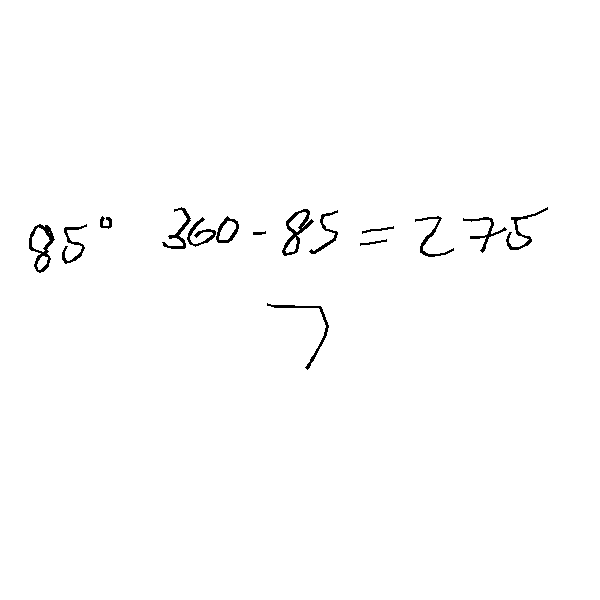 85° 360 - 85 = 275